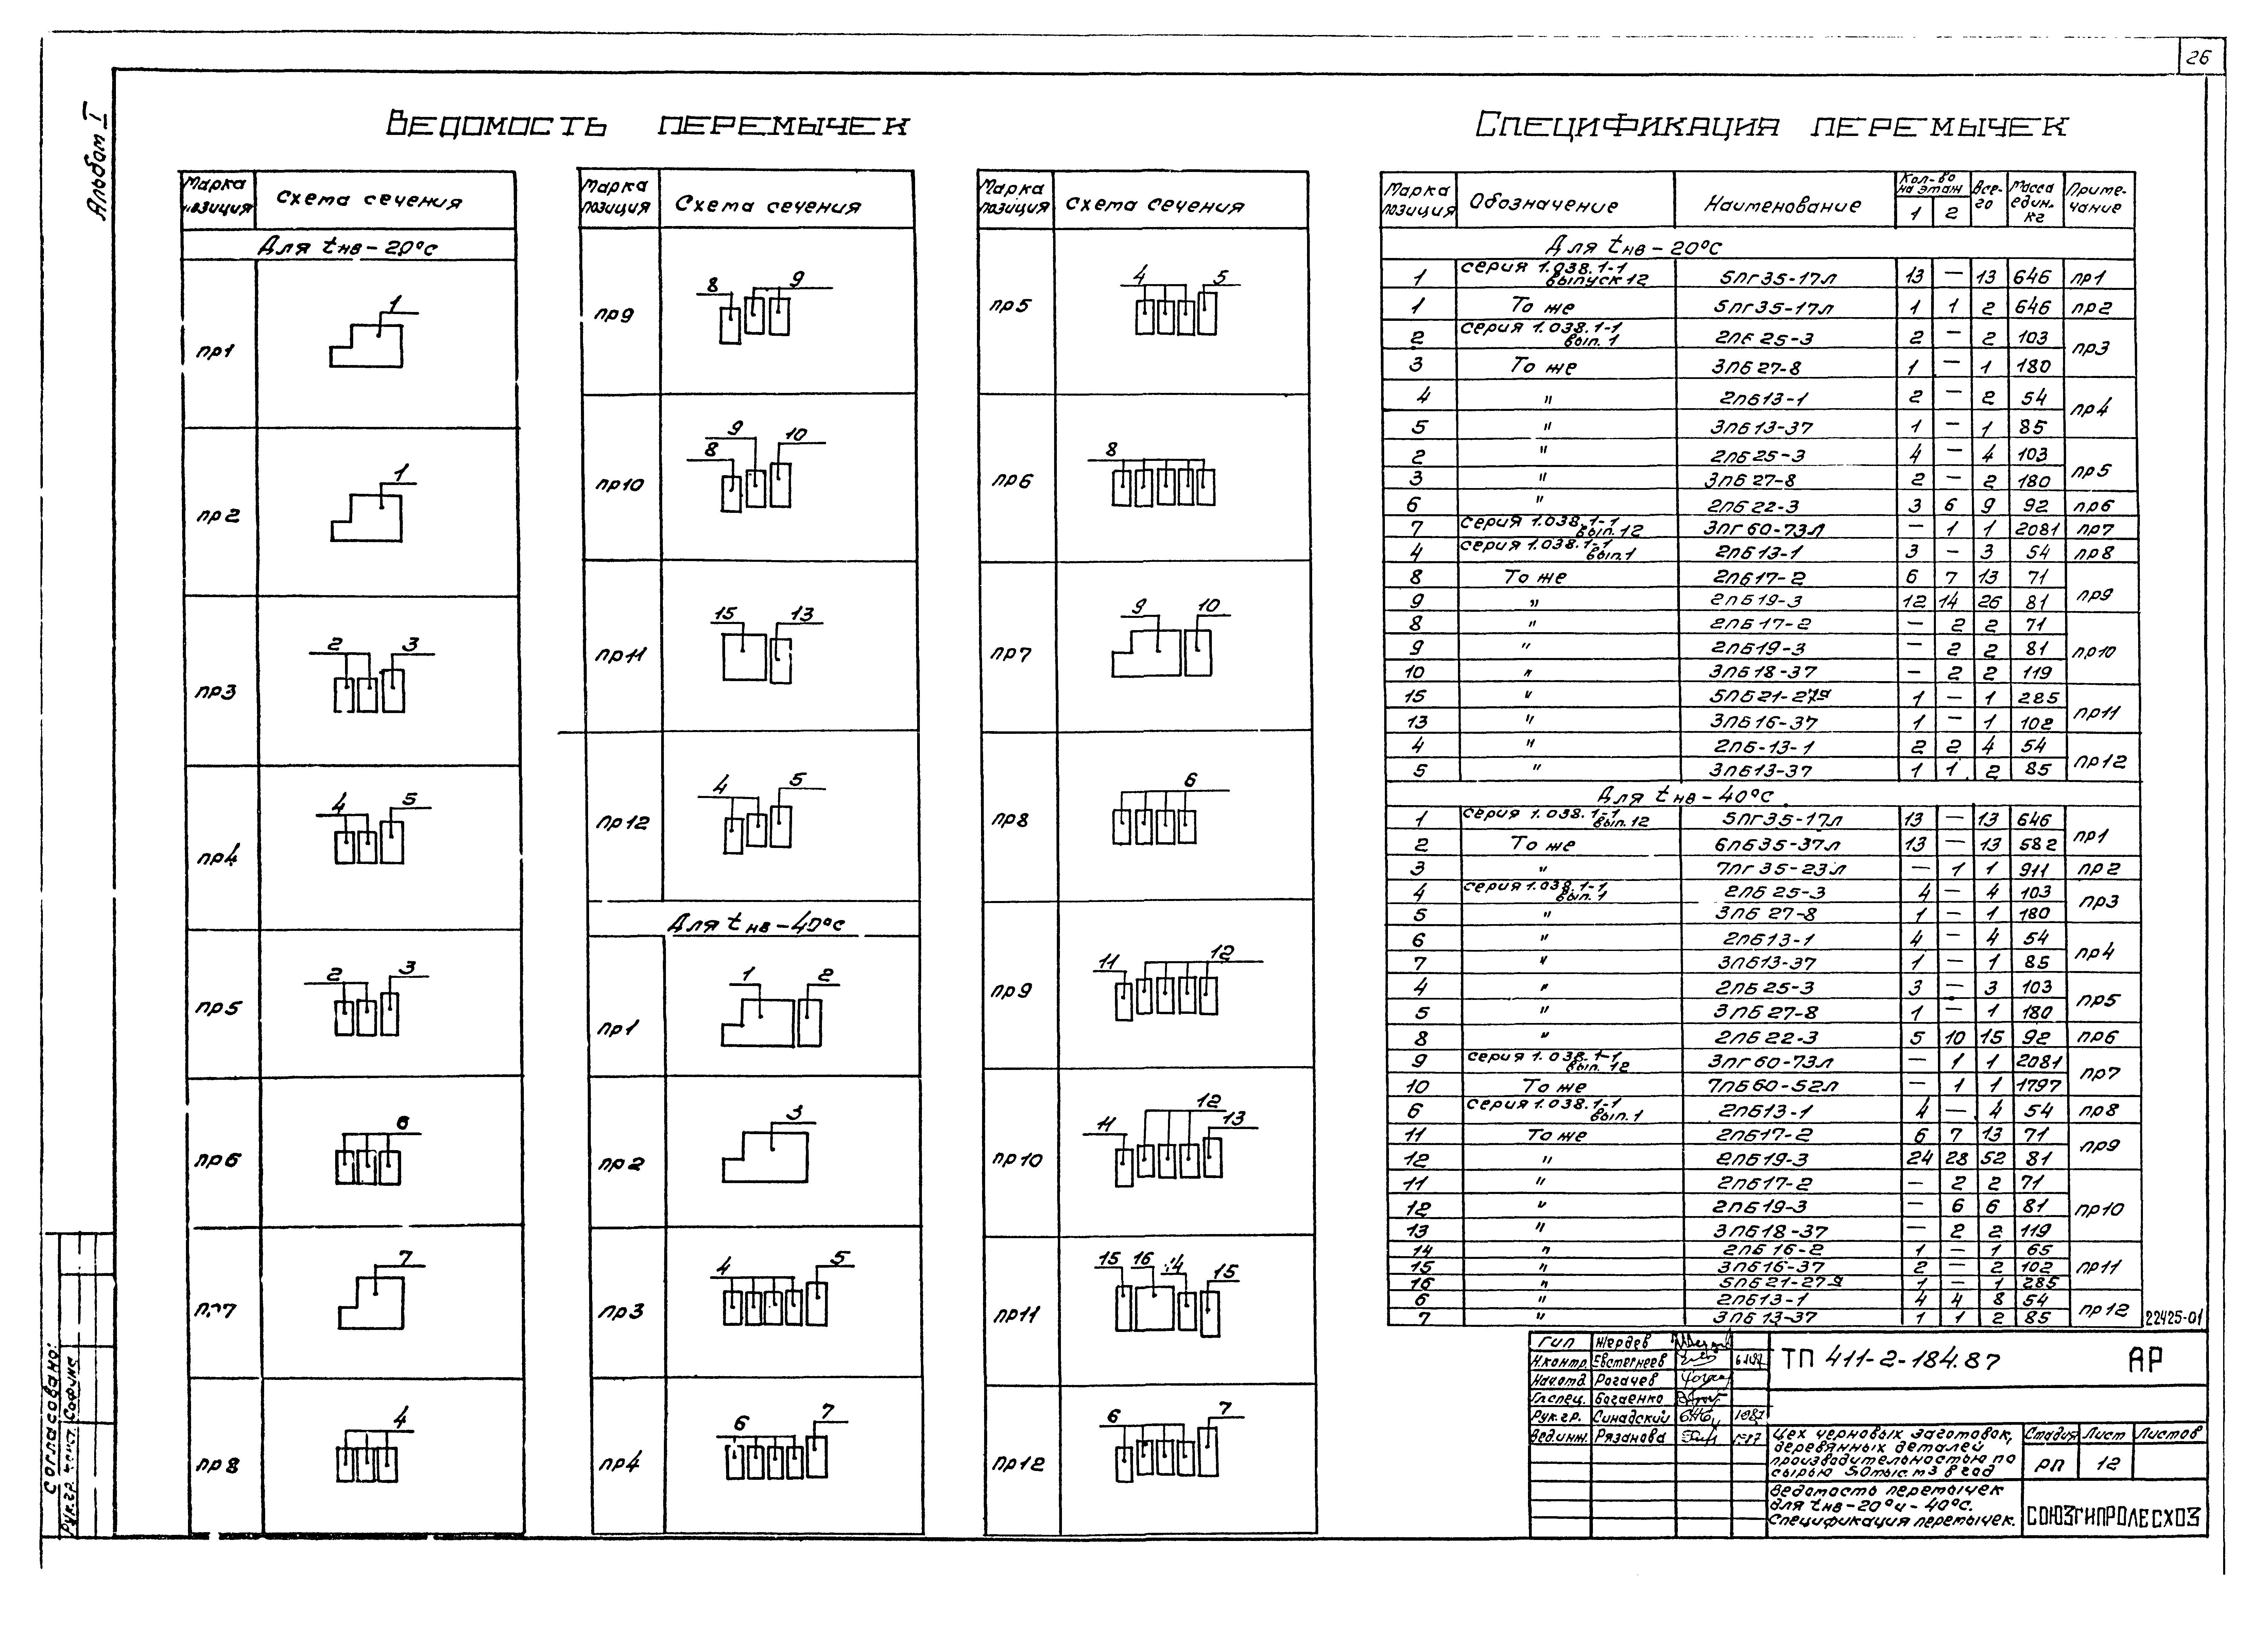 26
Альбом I
Ведомость перемычек
Спецификация перемычек
Марка позиция Схема сечения
Для tнв-20°С
пр1 1
пр2 1
пр3 2 3
пр4 4 5
пр5 2 3
пр6 6
пр7 7
пр8 4
Марка позиция Схема сечения
пр9 8 9
пр10 8 9 10
пр11 15 13
пр12 4 5
Для tнв-40°С
пр1 1 2
пр2 3
пр3 4 5
пр4 6 7
Марка позиция Схема сечения
пр5 4 5
пр6 8
пр7 9 10
пр8 6
пр9 11 12
пр10 11 12 13
пр11 15 16 14 15
пр12 6 7
Марка позиция Обозначение Наименование Кол-во на этаж 1 2 Все-го Масса един. кг Приме-чание
Для tнв-20°С
1 серия 1.038.1-1 выпуск 12 5пг35-17л 13 — 13 646 пр1
1 То же 5пг35-17л 1 1 2 646 пр2
2 серия 1.038.1-1 вып.1 2пб25-3 2 — 2 103 пр3
3 То же 3пб27-8 1 — 1 180
4 " 2пб13-1 2 — 2 54 пр4
5 " 3пб13-37 1 — 1 85
2 " 2пб25-3 4 — 4 103 пр5
3 " 3пб27-8 2 — 2 180
6 " 2пб22-3 3 6 9 92 пр6
7 серия 1.038.1-1 вып.12 3пг60-73л — 1 1 2081 пр7
4 серия 1.038.1-1 вып.1 2пб13-1 3 — 3 54 пр8
8 То же 2пб17-2 6 7 13 71 пр9
9 " 2пб19-3 12 14 26 81
8 " 2пб17-2 — 2 2 71 пр10
9 " 2пб19-3 — 2 2 81
10 " 3пб18-37 — 2 2 119
15 " 5пб21-27я 1 — 1 285 пр11
13 " 3пб16-37 1 — 1 102
4 " 2пб-13-1 2 2 4 54 пр12
5 " 3пб13-37 1 1 2 85
Для tнв-40°С
1 серия 1.038.1-1 вып.12 5пг35-17л 13 — 13 646 пр1
2 То же 6пб35-37л 13 — 13 582
3 " 7пг35-23л — 1 1 911 пр2
4 серия 1.038.1-1 вып.1 2пб25-3 4 — 4 103 пр3
5 " 3пб27-8 1 — 1 180
6 " 2пб13-1 4 — 4 54 пр4
7 " 3пб13-37 1 — 1 85
4 " 2пб25-3 3 — 3 103 пр5
5 " 3пб27-8 1 — 1 180
8 " 2пб22-3 5 10 15 92 пр6
9 серия 1.038.1-1 вып.12 3пг60-73л — 1 1 2081 пр7
10 То же 7пб60-52л — 1 1 1797
6 серия 1.038.1-1 вып.1 2пб13-1 4 — 4 54 пр8
11 То же 2пб17-2 6 7 13 71 пр9
12 " 2пб19-3 24 28 52 81
11 " 2пб17-2 — 2 2 71 пр10
12 " 2пб19-3 — 6 6 81
13 " 3пб18-37 — 2 2 119
14 " 2пб16-2 1 — 1 65 пр11
15 " 3пб16-37 2 — 2 102
16 " 5пб21-27я 1 — 1 285
6 " 2пб13-1 4 4 8 54 пр12
7 " 3пб13-37 1 1 2 85
22425-01
Гип Жердев
Н.контр. Евстегнеев
Нач.отд. Рогачев
Гл.спец. Богаенко
Рук.гр. Синадский 1987
Вед.инж. Рязанова
ТП 411-2-184.87 АР
Цех черновых заготовок, деревянных деталей производительностью по сырью 50тыс.м3 в год
Стадия Лист Листов
РП 12
Ведомость перемычек для tнв-20° и -40°С. Спецификация перемычек.
СОЮЗГИПРОЛЕСХОЗ
Согласовано:
Рук.гр.